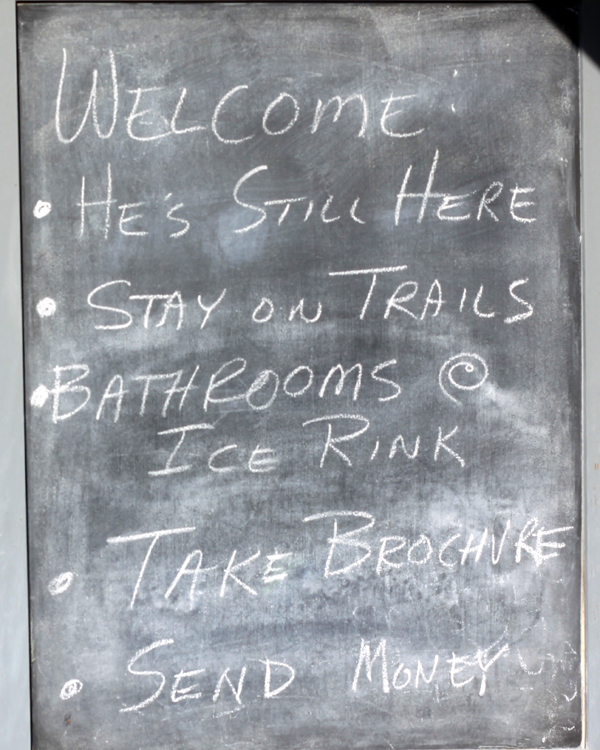 WELCOME:
• HE'S STILL HERE
• STAY ON TRAILS
• BATHROOMS @
ICE RINK
• TAKE BROCHURE
• SEND MONEY